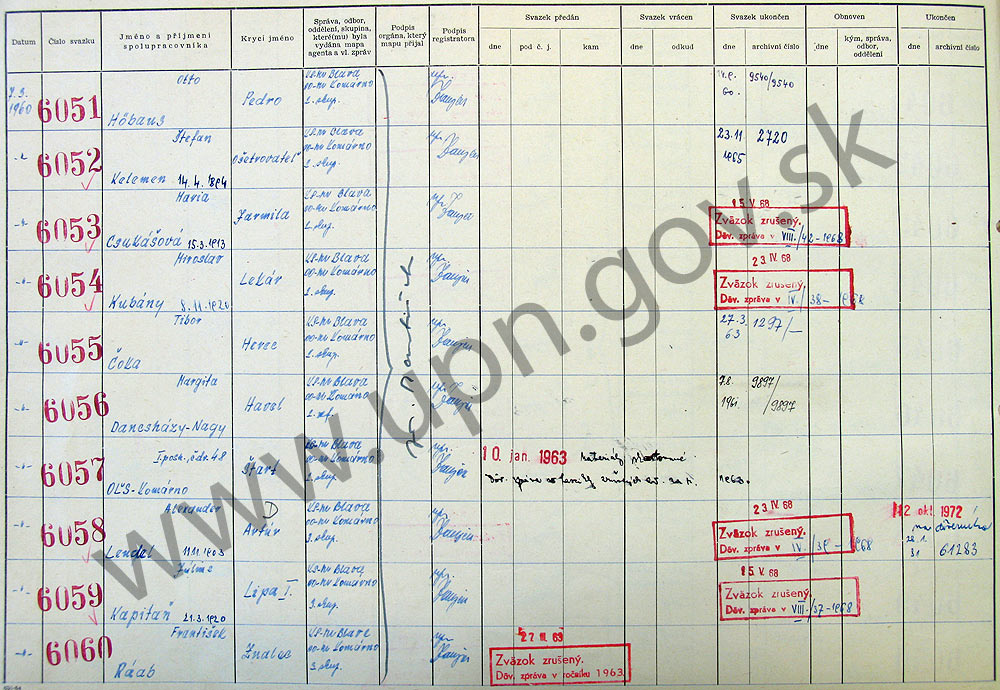 Datum
Číslo svazku
Jméno a příjmení spolupracovníka
Krycí jméno
Správa, odbor, oddělení, skupina, které(mu) byla vydána mapa agenta a vl. zpráv
Podpis orgána, který mapu přijal
Podpis registratora
Svazek předán
dne
pod č. j.
kam
Svazek vrácen
dne
odkud
Svazek ukončen
dne
archivní číslo
Obnoven
dne
kým, správa, odbor, oddělení
Ukončen
dne
archivní číslo
1960
6051
Otto
Pedro
KS-MV Blava
OO-MV Komárno
2. skup.
9540/9540
60.
6052
Štefan
Kelemen 14.4.1894
Ošetrovateľ
KS-MV Blava
OO-MV Komárno
2. skup.
23.11
1965
2720
6053
Mária
Csukášová 15.3.1913
Jarmila
KS-MV Blava
OO-MV Komárno
2. skup.
15 V. 68
Zväzok zrušený.
Dôv. zpráva v VIII./42-1968
6054
Miroslav
Kubány 8.11.1920
Lekár
KS-MV Blava
OO-MV Komárno
2. skup.
23 IV. 68
Zväzok zrušený.
Dôv. zpráva v IV./38-1968
6055
Tibor
Čóka
KS-MV Blava
OO-MV Komárno
2. skup.
27.3.
63
1297/-
6056
Margita
Dancsházy-Nagy
Havel
KS-MV Blava
OO-MV Komárno
7.8.
1961
9897/
/9897
6057
OĽS-Komárno
Štart
KS-MV Blava
OO-MV Komárno
2. skup.
10. jan. 1963
1963.
6058
Alexander
Lendel 11.11.1903
D
Artúr
KS-MV Blava
OO-MV Komárno
3. skup.
23 IV. 68
Zväzok zrušený.
Dôv. zpráva v IV./38-1968
12 okt. 1972
61283
6059
Kapitaň 21.3.1920
Lipa I.
KS-MV Blava
OO-MV Komárno
3. skup.
15 V. 68
Zväzok zrušený.
Dôv. zpráva v VIII./37-1968
6060
František
Ráab
Znalec
KS-MV Blava
OO-MV Komárno
3. skup.
27 III. 63
Zväzok zrušený.
Dôv. zpráva v ročníku 1963.
www.upn.gov.sk